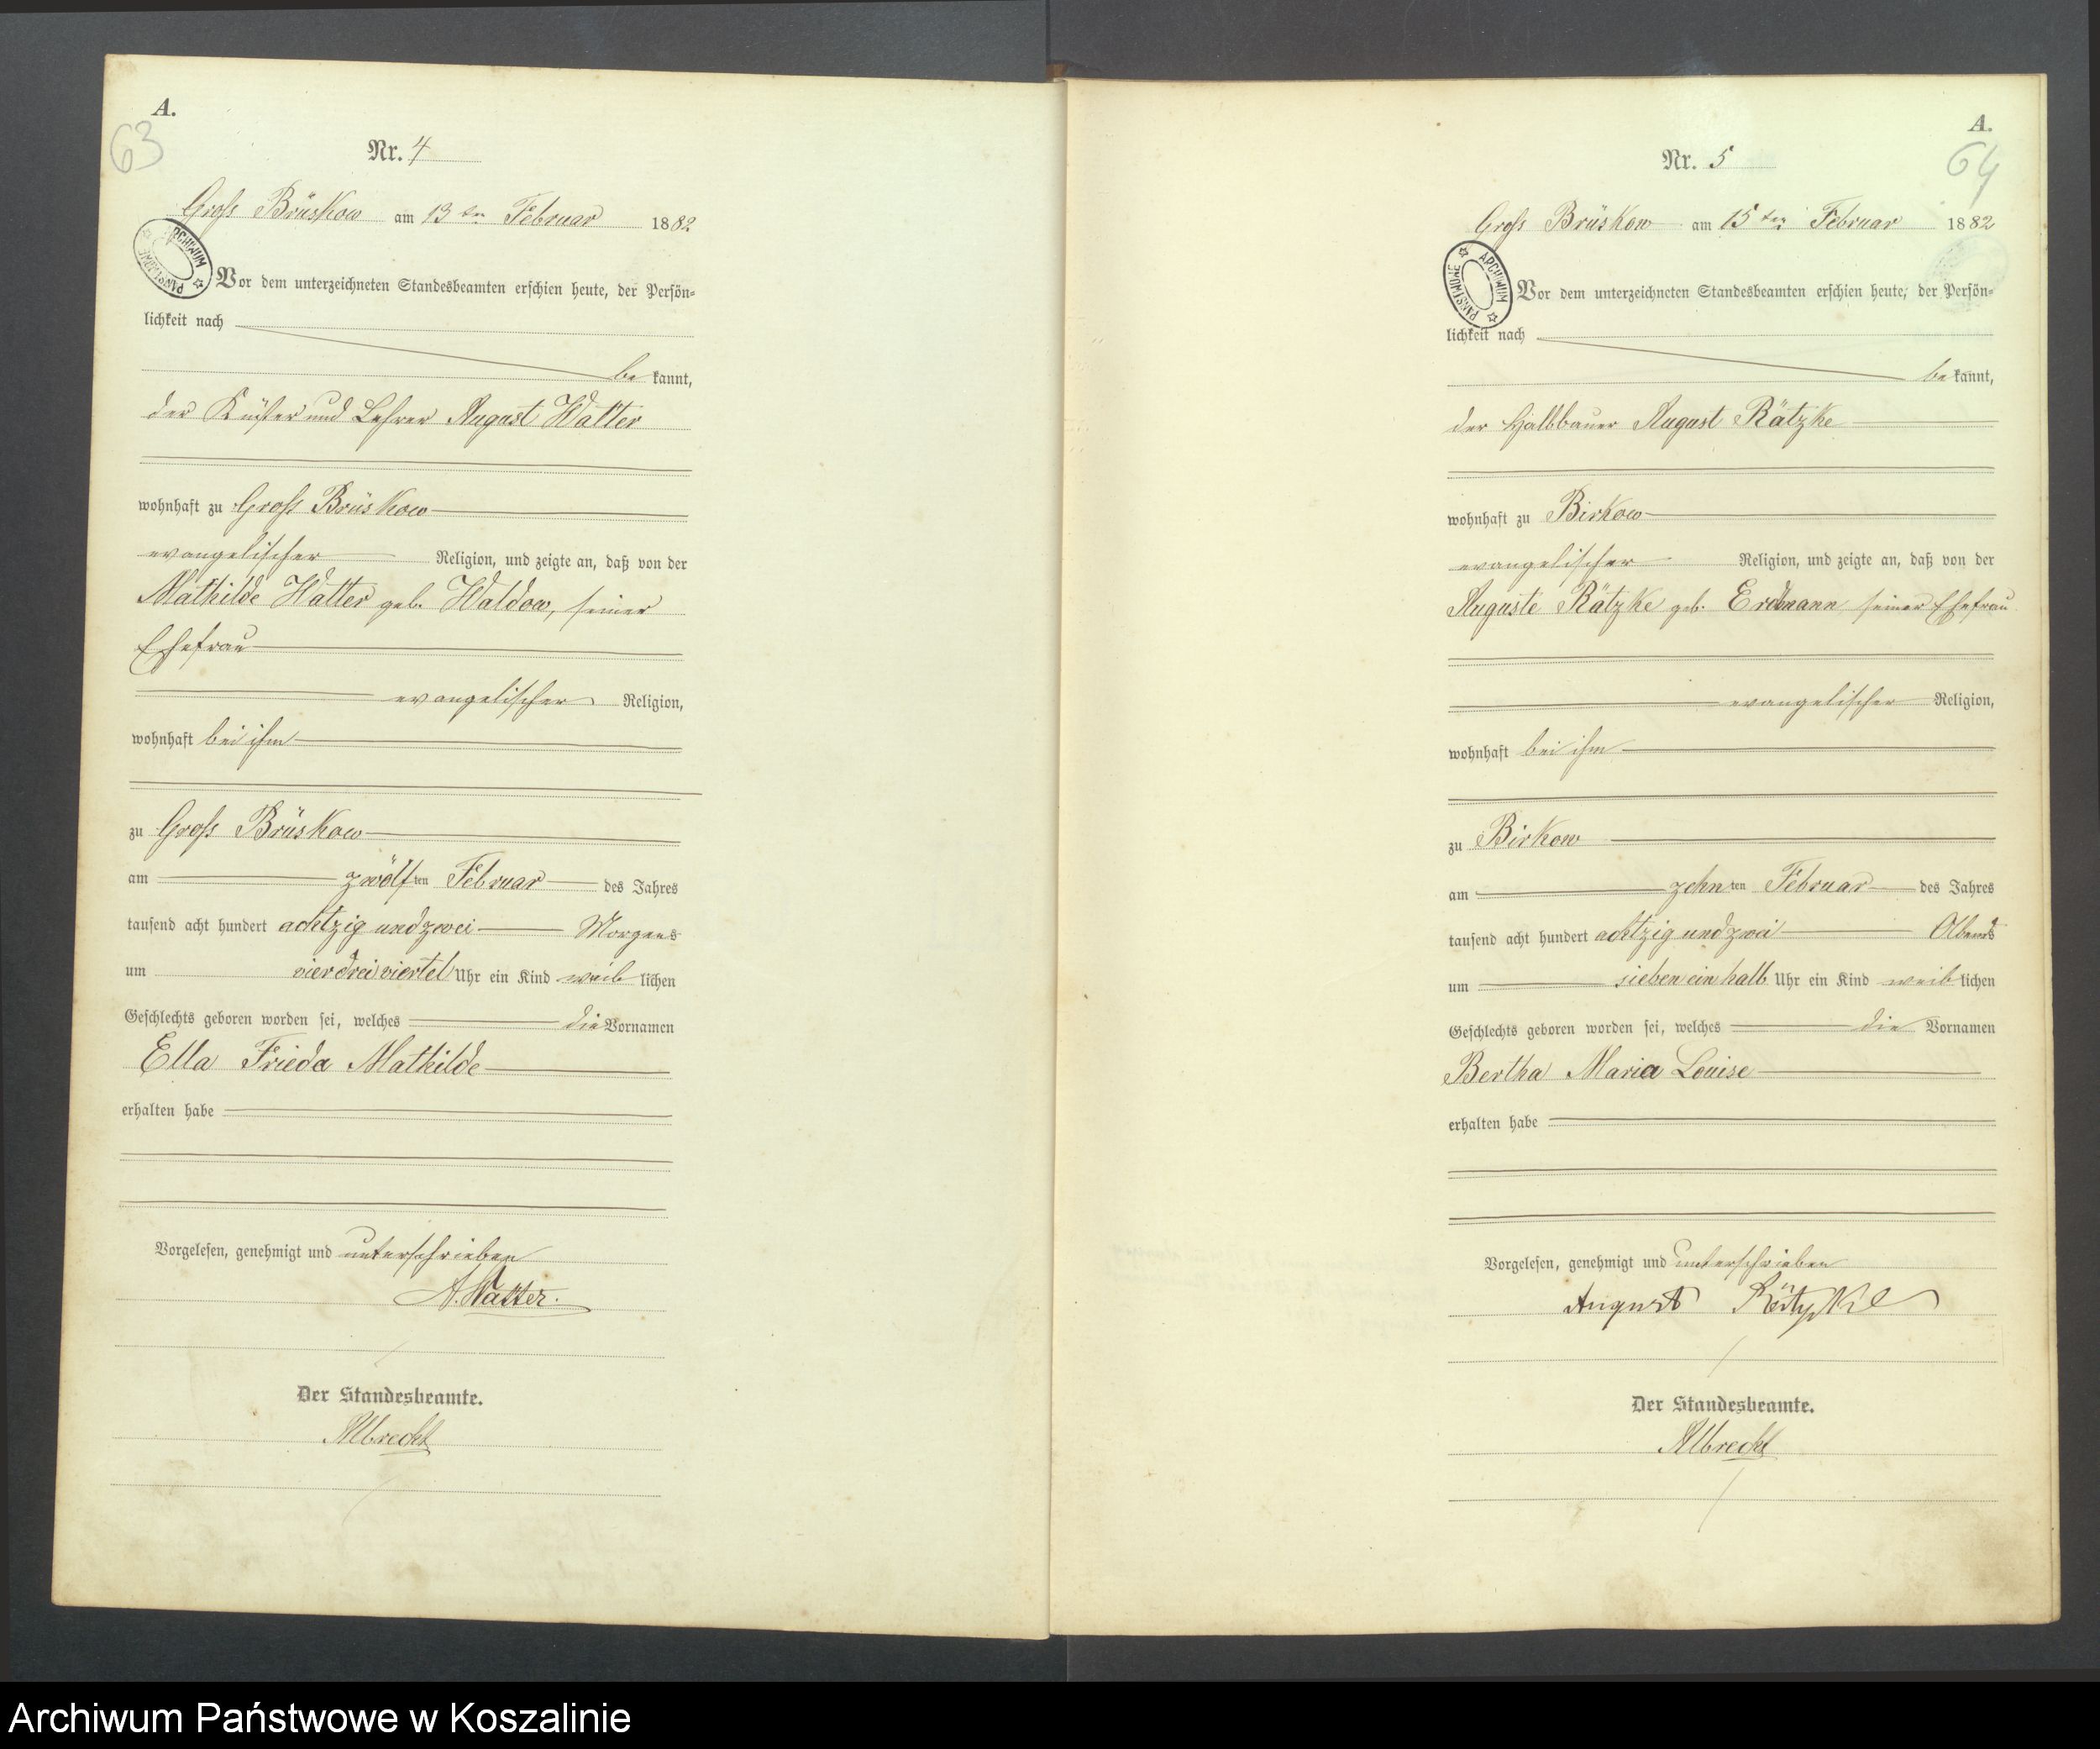 A.
63
Nr. 4
Groß Brüskow am 13ten Februar 1882
ARCHIWUM PAŃSTWOWE
Vor dem unterzeichneten Standesbeamten erschien heute, der Persön-
lichkeit nach
bekannt,
der Küster und Lehrer August Watter
wohnhaft zu Groß Brüskow
evangelischer Religion, und zeigte an, daß von der
Mathilde Watter geb. Waldow, seiner
Ehefrau
evangelischer Religion,
wohnhaft bei ihm
zu Groß Brüskow
am zwölften Februar des Jahres
tausend acht hundert achtzig und zwei Morgens
um vier dreiviertel Uhr ein Kind weiblichen
Geschlechts geboren worden sei, welches die Vornamen
Ella Frieda Mathilde
erhalten habe
Vorgelesen, genehmigt und unterschrieben
A. Watter.
Der Standesbeamte.
Albrecht
A.
64
Nr. 5
Groß Brüskow am 15ten Februar 1882
ARCHIWUM PAŃSTWOWE
Vor dem unterzeichneten Standesbeamten erschien heute, der Persön-
lichkeit nach
bekannt,
der Halbbauer August Rätzke
wohnhaft zu Birkow
evangelischer Religion, und zeigte an, daß von der
Auguste Rätzke geb. Erdmann seiner Ehefrau
evangelischer Religion,
wohnhaft bei ihm
zu Birkow
am zehnten Februar des Jahres
tausend acht hundert achtzig und zwei Abends
um sieben ein halb Uhr ein Kind weiblichen
Geschlechts geboren worden sei, welches die Vornamen
Bertha Maria Louise
erhalten habe
Vorgelesen, genehmigt und unterschrieben
August Rätzke
Der Standesbeamte.
Albrecht
Archiwum Państwowe w Koszalinie